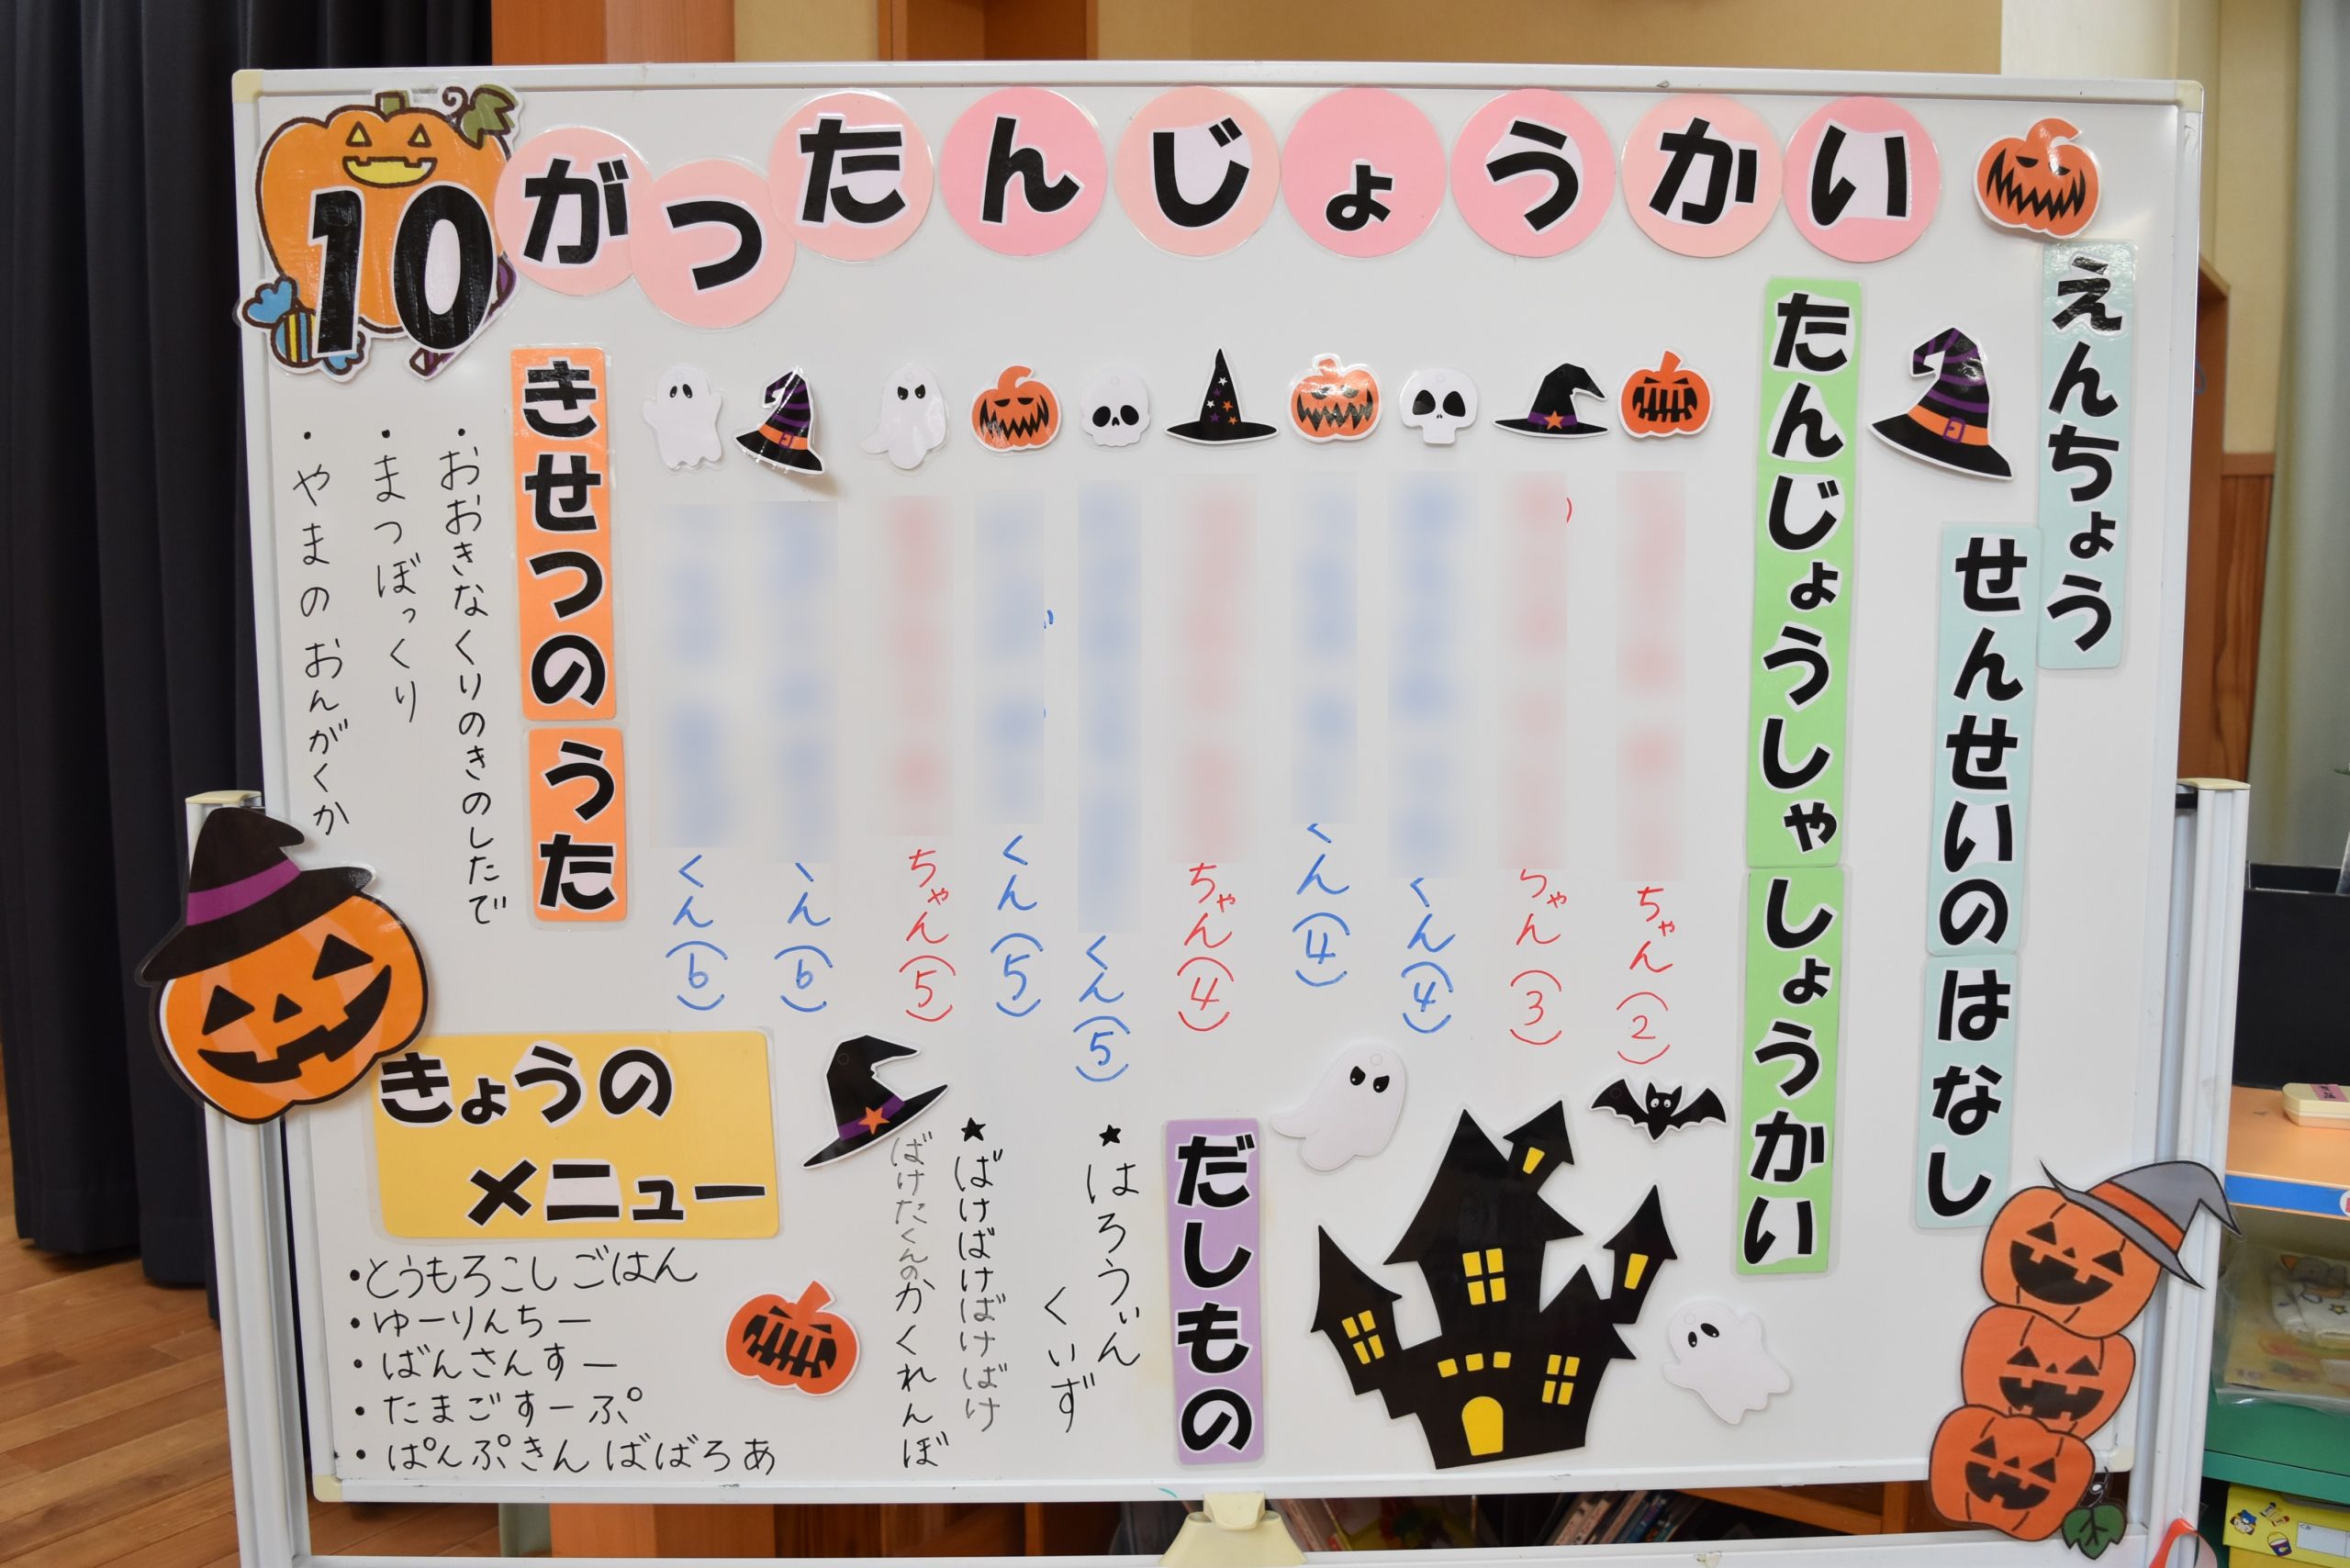 10がつたんじょうかい
えんちょう
せんせいのはなし
たんじょうしゃしょうかい
ちゃん(2)
ちゃん(3)
くん(4)
くん(4)
ちゃん(4)
くん(5)
くん(5)
ちゃん(5)
ん(6)
くん(6)
きせつのうた
・おおきなくりのきのしたで
・まつぼっくり
・やまのおんがくか
だしもの
★はろうぃん
くいず
★ばけばけばけばけ
ばけたくんのかくれんぼ
きょうの
メニュー
・とうもろこしごはん
・ゆーりんちー
・ばんさんすー
・たまごすーぷ
・ぱんぷきんばばろあ